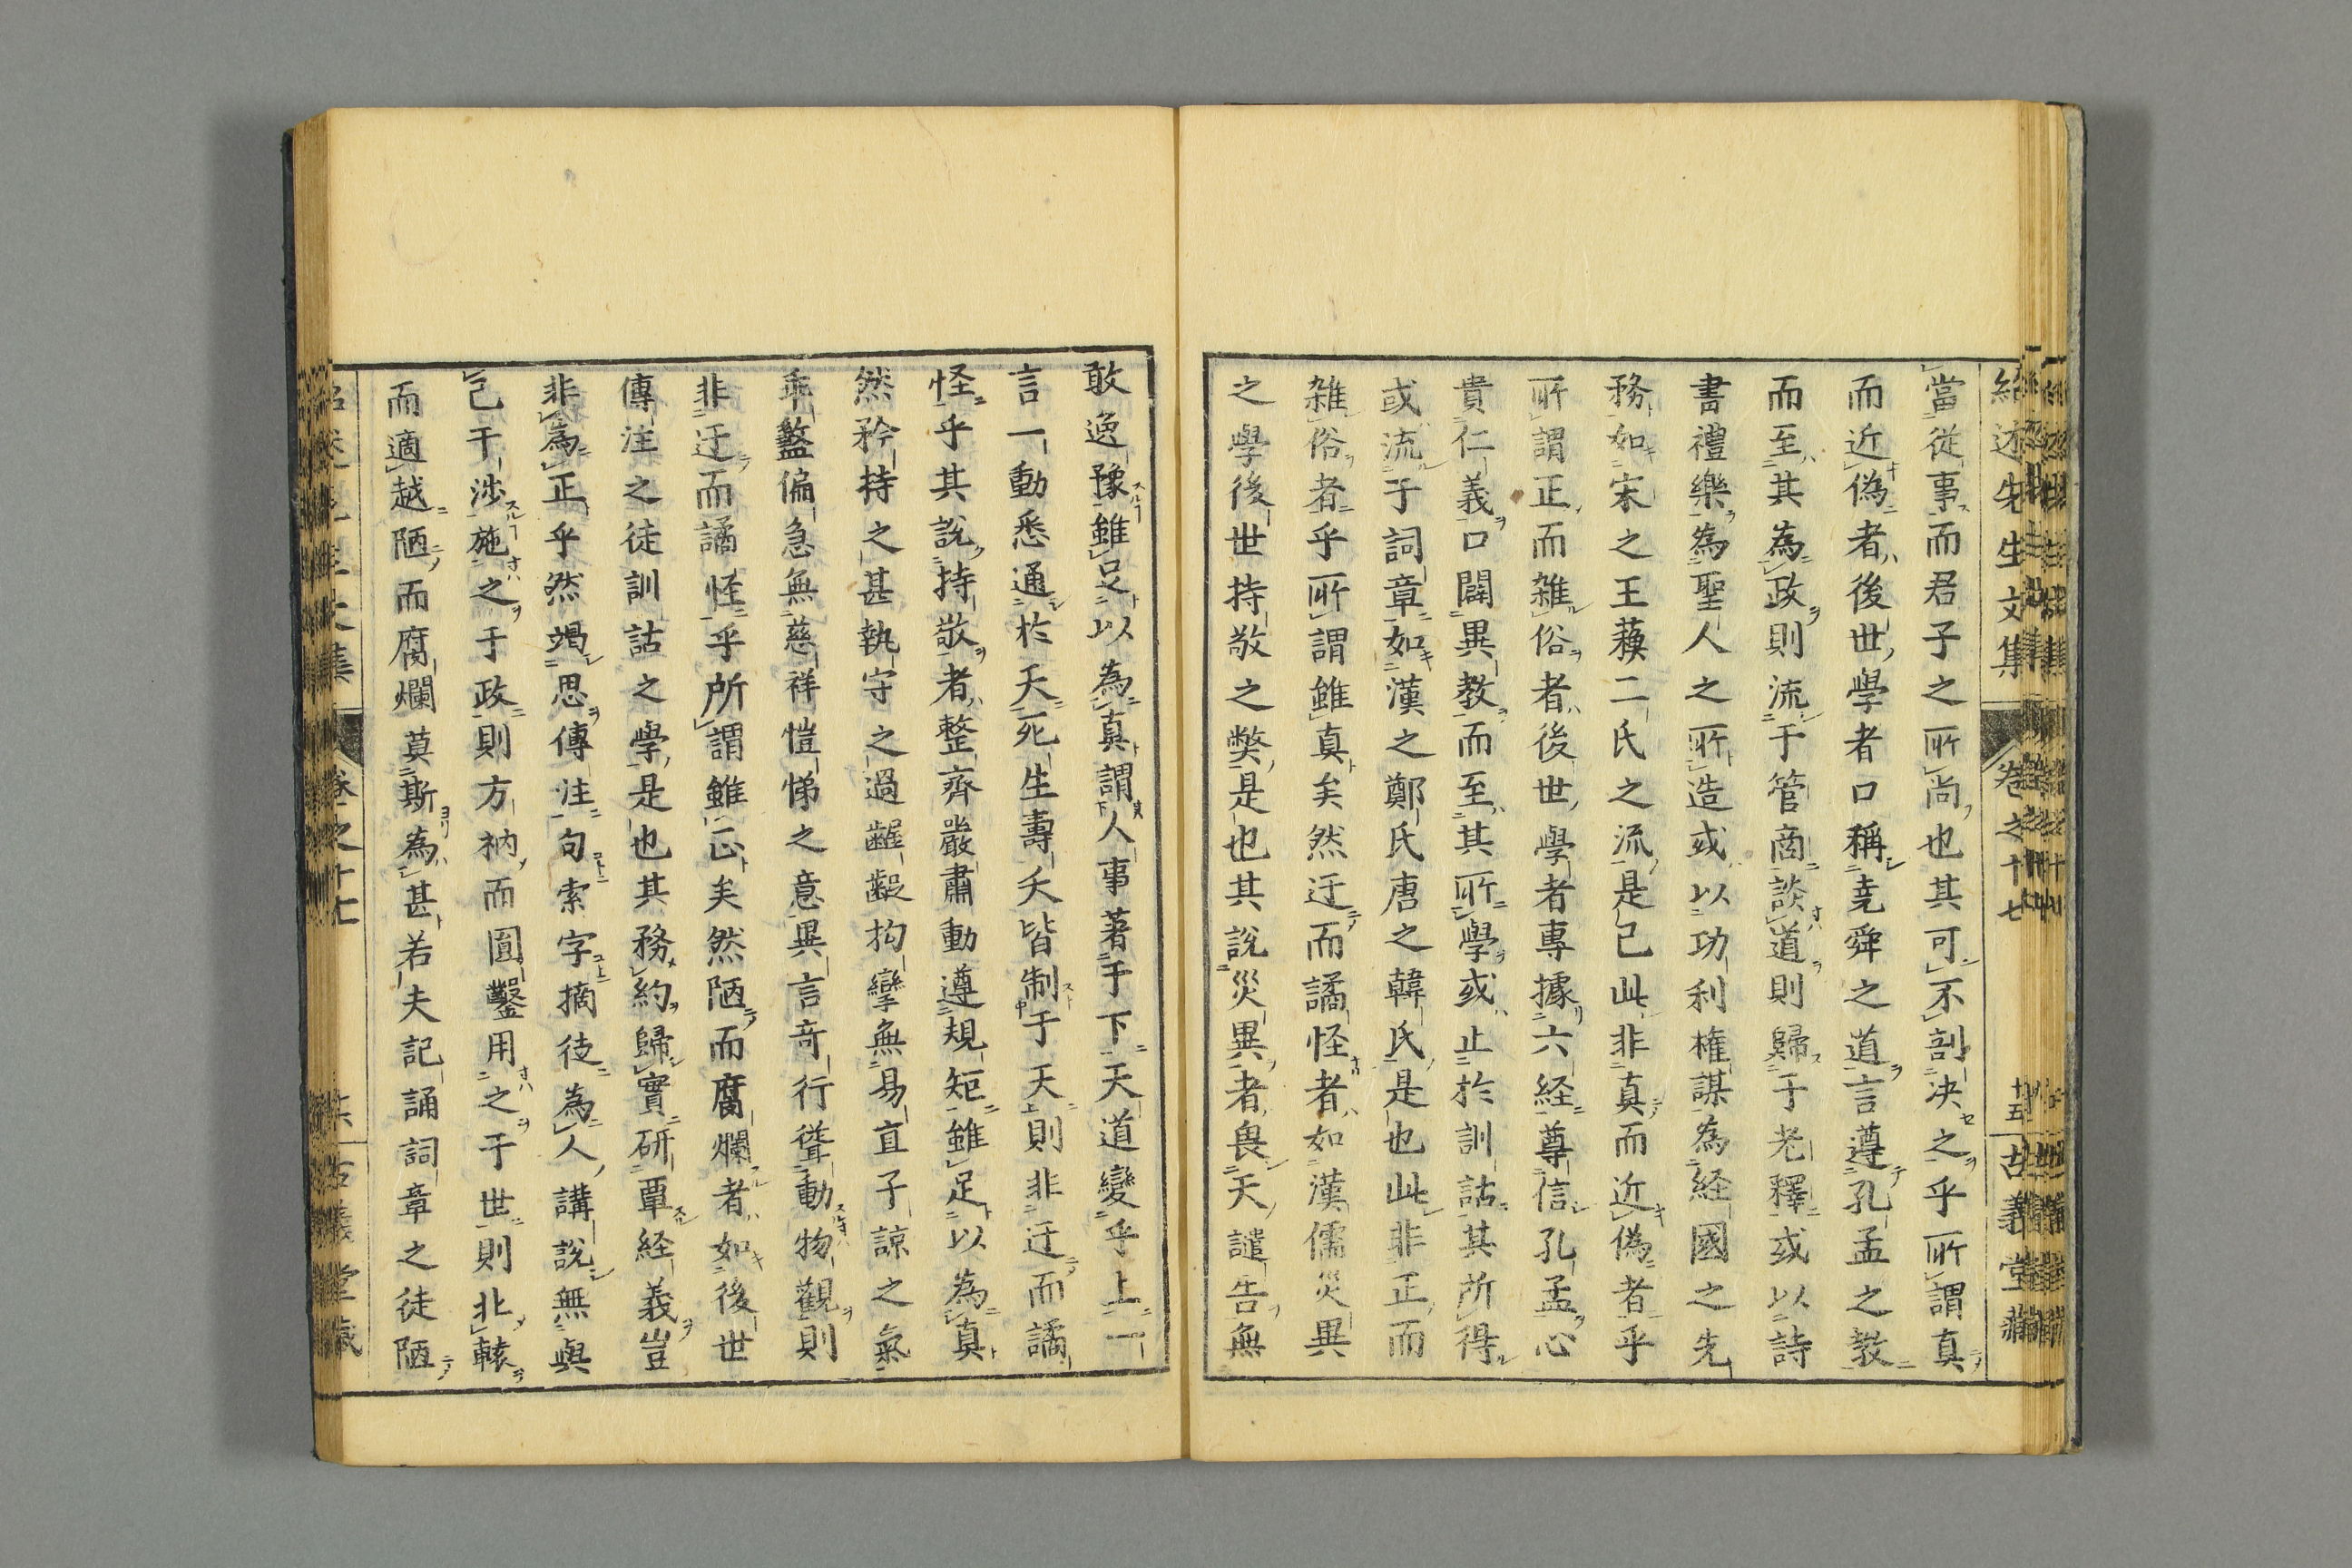 紹述先生文集 卷之十七 十五 古義堂藏
當從事而君子之所尚也其可不剖决之乎所謂真
而近偽者後世學者口稱堯舜之道言遵孔孟之教
而至其為政則流于管商談道則歸于老釋或以詩
書禮樂為聖人之所造或以功利權謀為経國之先
務如宋之王蘓二氏之流是已此非真而近偽者乎
所謂正而雑俗者後世學者專據六経尊信孔孟心
貴仁義口闢異教而至其所學或止於訓詁其所得
或流于詞章如漢之鄭氏唐之韓氏是也此非正而
雑俗者乎所謂雖真矣然迂而譎怪者如漢儒災異
之學後世持敬之弊是也其說災異者畏天譴告無
敢逸豫雖足以為真謂人事著于下天道變乎上一
言一動悉通於天死生壽夭皆制于天則非迂而譎
怪乎其說持敬者整齊嚴肅動遵規矩雖足以為真
然矜持之甚執守之過齷齪拘攣無易直子諒之氣
乖盭偏急無慈祥愷悌之意異言奇行聳動物觀則
非迂而譎怪乎所謂雖正矣然陋而腐爛者如後世
傳注之徒訓詁之學是也其務約歸實研覃経義豈
非為正乎然竭思傳注句索字摘徒為人講說無與
己干涉施之于政則方枘而圓鑿用之于世則北轅
而適越陋而腐爛莫斯為甚若夫記誦詞章之徒陋
卷之十七 古義堂藏